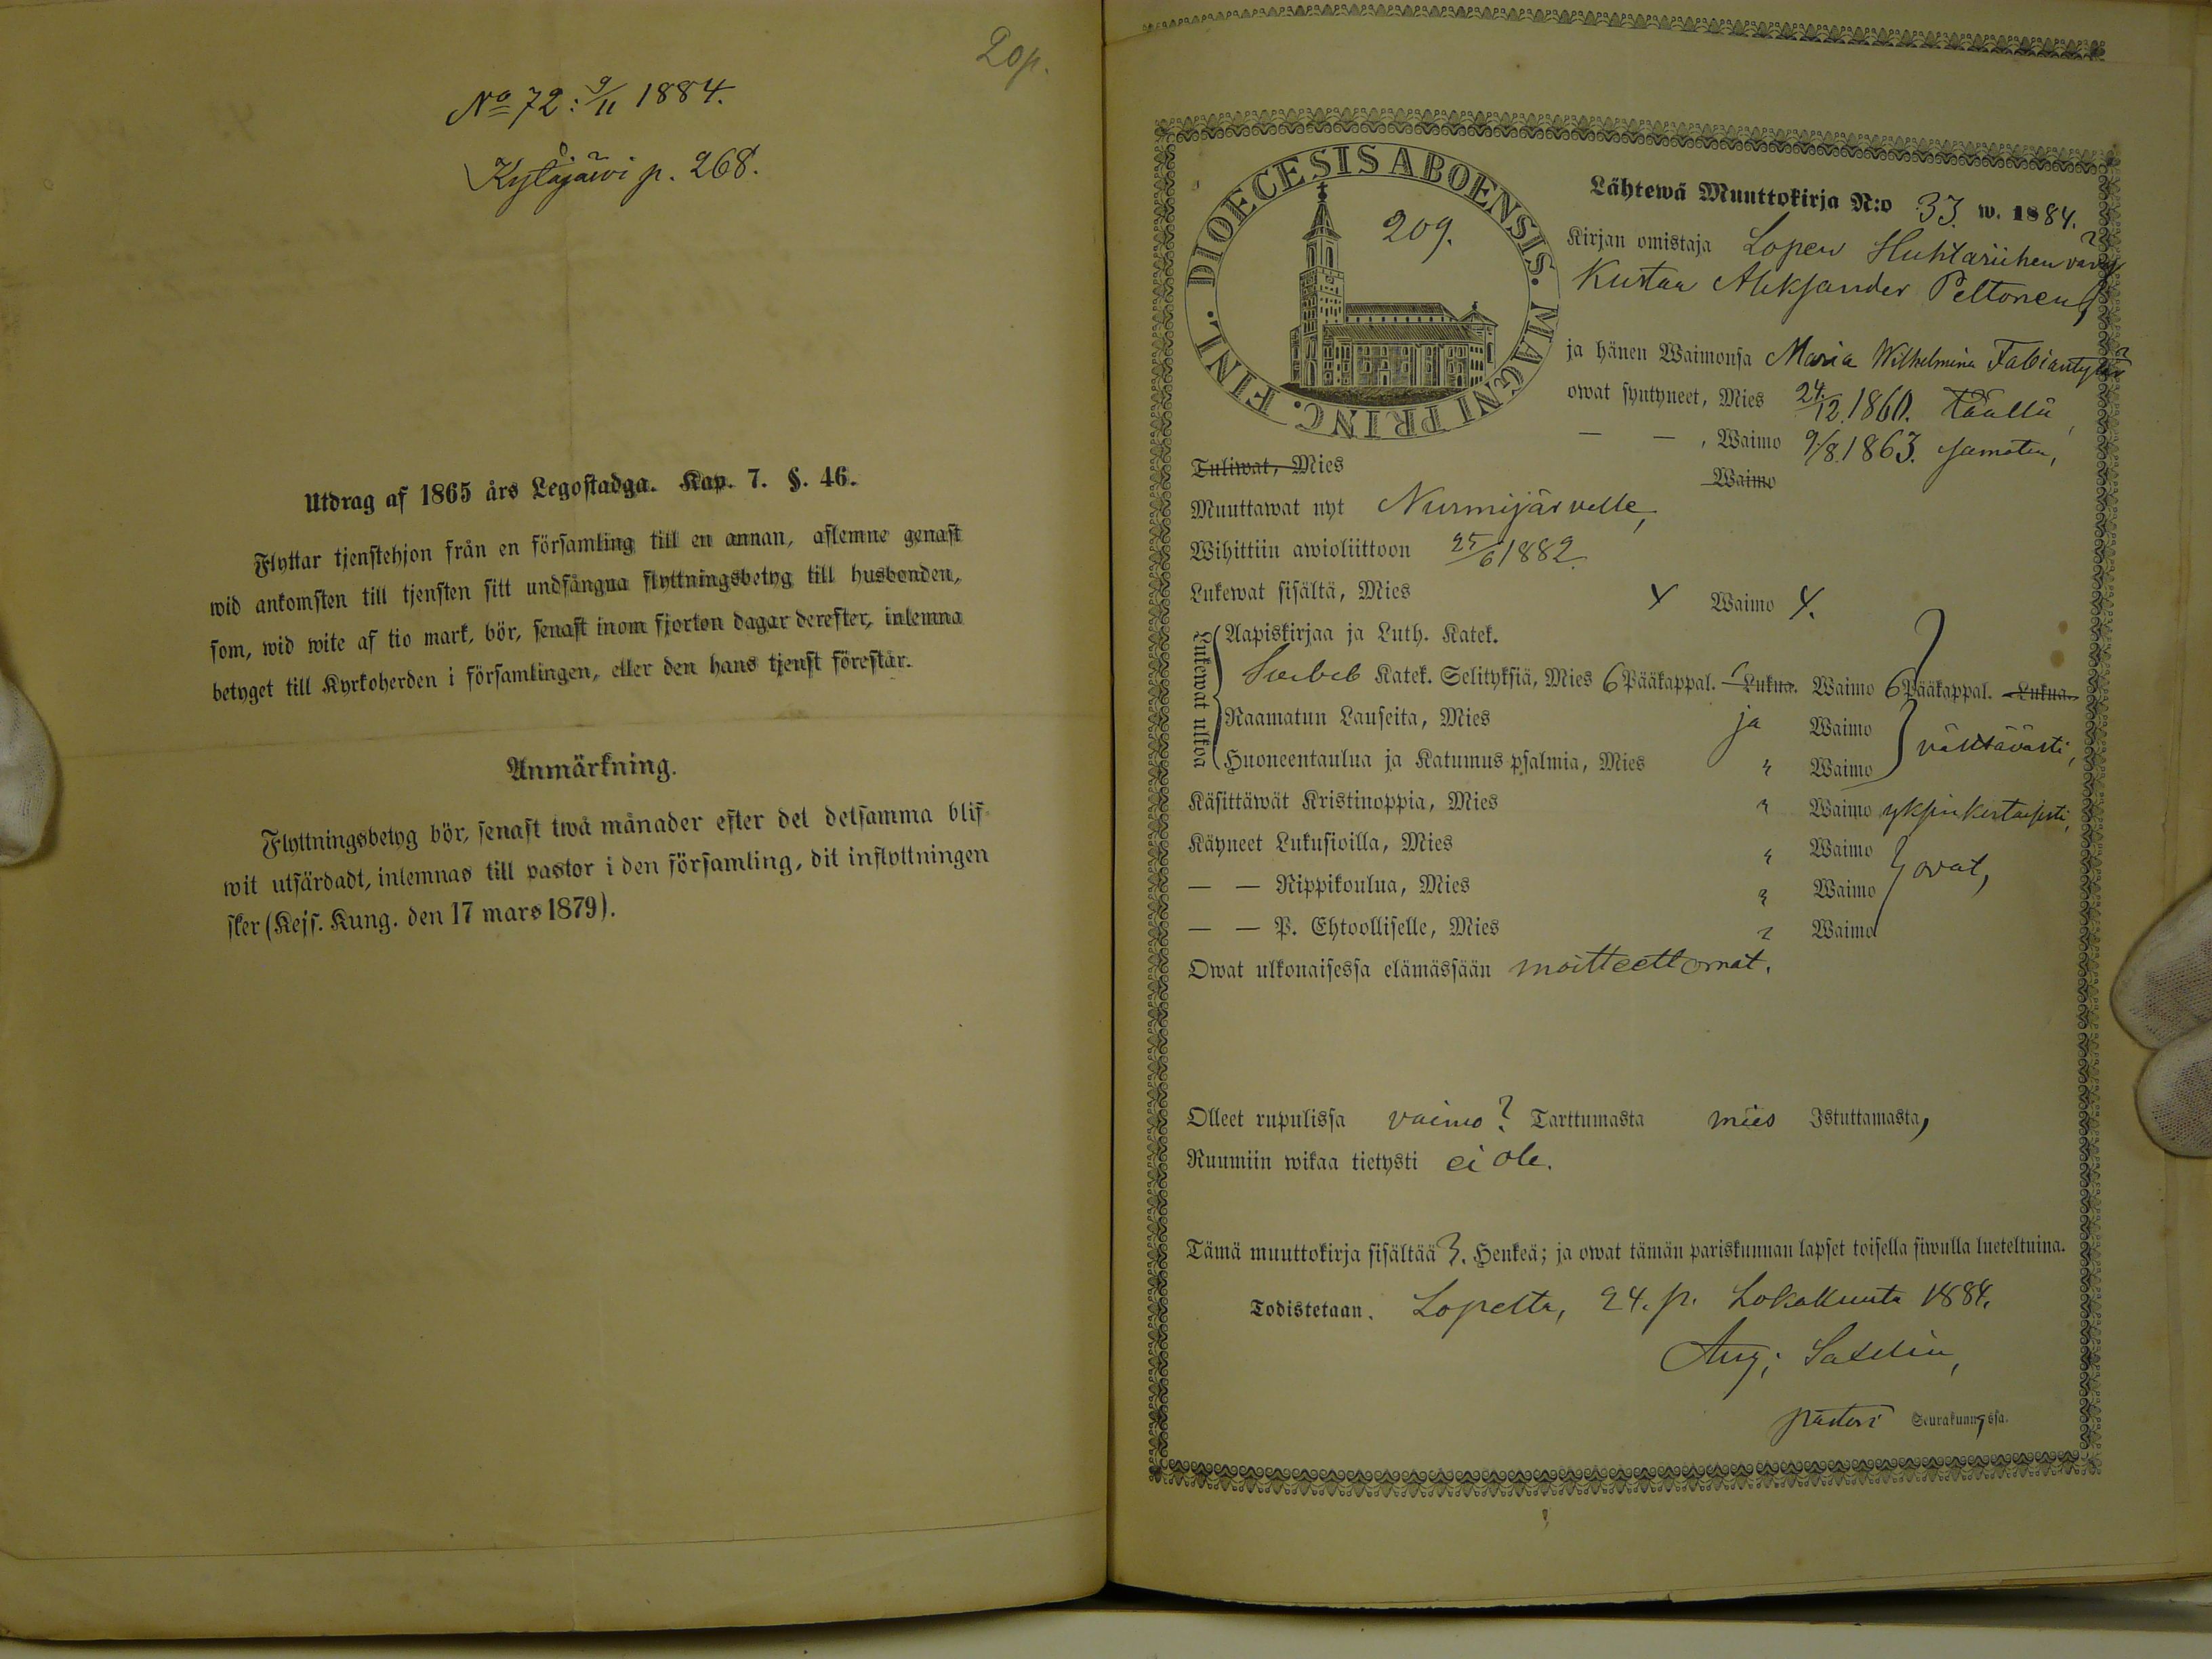 20p.
No 72: 9/11 1884.
Kytäjäwi p. 268.
Utdrag af 1865 års Legostadga. Kap. 7. §. 46.
Flyttar tjenstehjon från en församling till en annan, aflemne genast
wid ankomsten till tjensten sitt undfångna flyttningsbetyg till husbonden,
som, wid wite af tio mark, bör, senast inom fjorton dagar derefter, inlemna
betyget till Kyrkoherden i församlingen, eller den hans tjenst förestår.
Anmärkning.
Flyttningsbetyg bör, senast twå månader efter det detsamma blif-
wit utfärdadt, inlemnas till pastor i den församling, dit inflyttningen
sker (Kejs. Kung. den 17 mars 1879).
DIOECESIS ABOENSIS. MAGNI PRINC. FINL.
209.
Lähtewä Muuttokirja N:o 33. w. 1884.
Kirjan omistaja Lopen Huhtariihen vävy
Kustaa Aleksander Peltonen,
ja hänen Waimonsa Maria Wilhelmina Fabiantytär
owat syntyneet, Mies 24/12. 1860. täällä,
— — , Waimo 9/8. 1863. samaten,
Tuliwat, Mies Waimo
Muuttawat nyt Nurmijärvelle,
Wihittiin awioliittoon 25/6 1882.
Lukewat sisältä, Mies 4 Waimo 4.
Lukewat ulkoa
Aapiskirjaa ja Luth. Katek.
Katek. Selityksiä, Mies 6 Pääkappal. Lukua. Waimo 6 Pääkappal. Lukua.
Raamatun Lauseita, Mies ja Waimo
välttävästi,
Huoneentaulua ja Katumus psalmia, Mies " Waimo
Käsittäwät Kristinoppia, Mies " Waimo yksinkertaisesti,
Käyneet Lukusioilla, Mies " Waimo
ovat,
— — Rippikoulua, Mies " Waimo
— — P. Ehtoolliselle, Mies " Waimo
Owat ulkonaisessa elämässään moitteettomat.
Olleet rupulissa vaimo? Tarttumasta mies Istuttamasta,
Ruumiin wikaa tietysti ei ole.
Tämä muuttokirja sisältää 3. Henkeä; ja owat tämän pariskunnan lapset toisella siwulla lueteltuina.
Todistetaan. Lopelta, 24. p. Lokakuuta 1884.
Aug;
pastori Seurakunnassa.